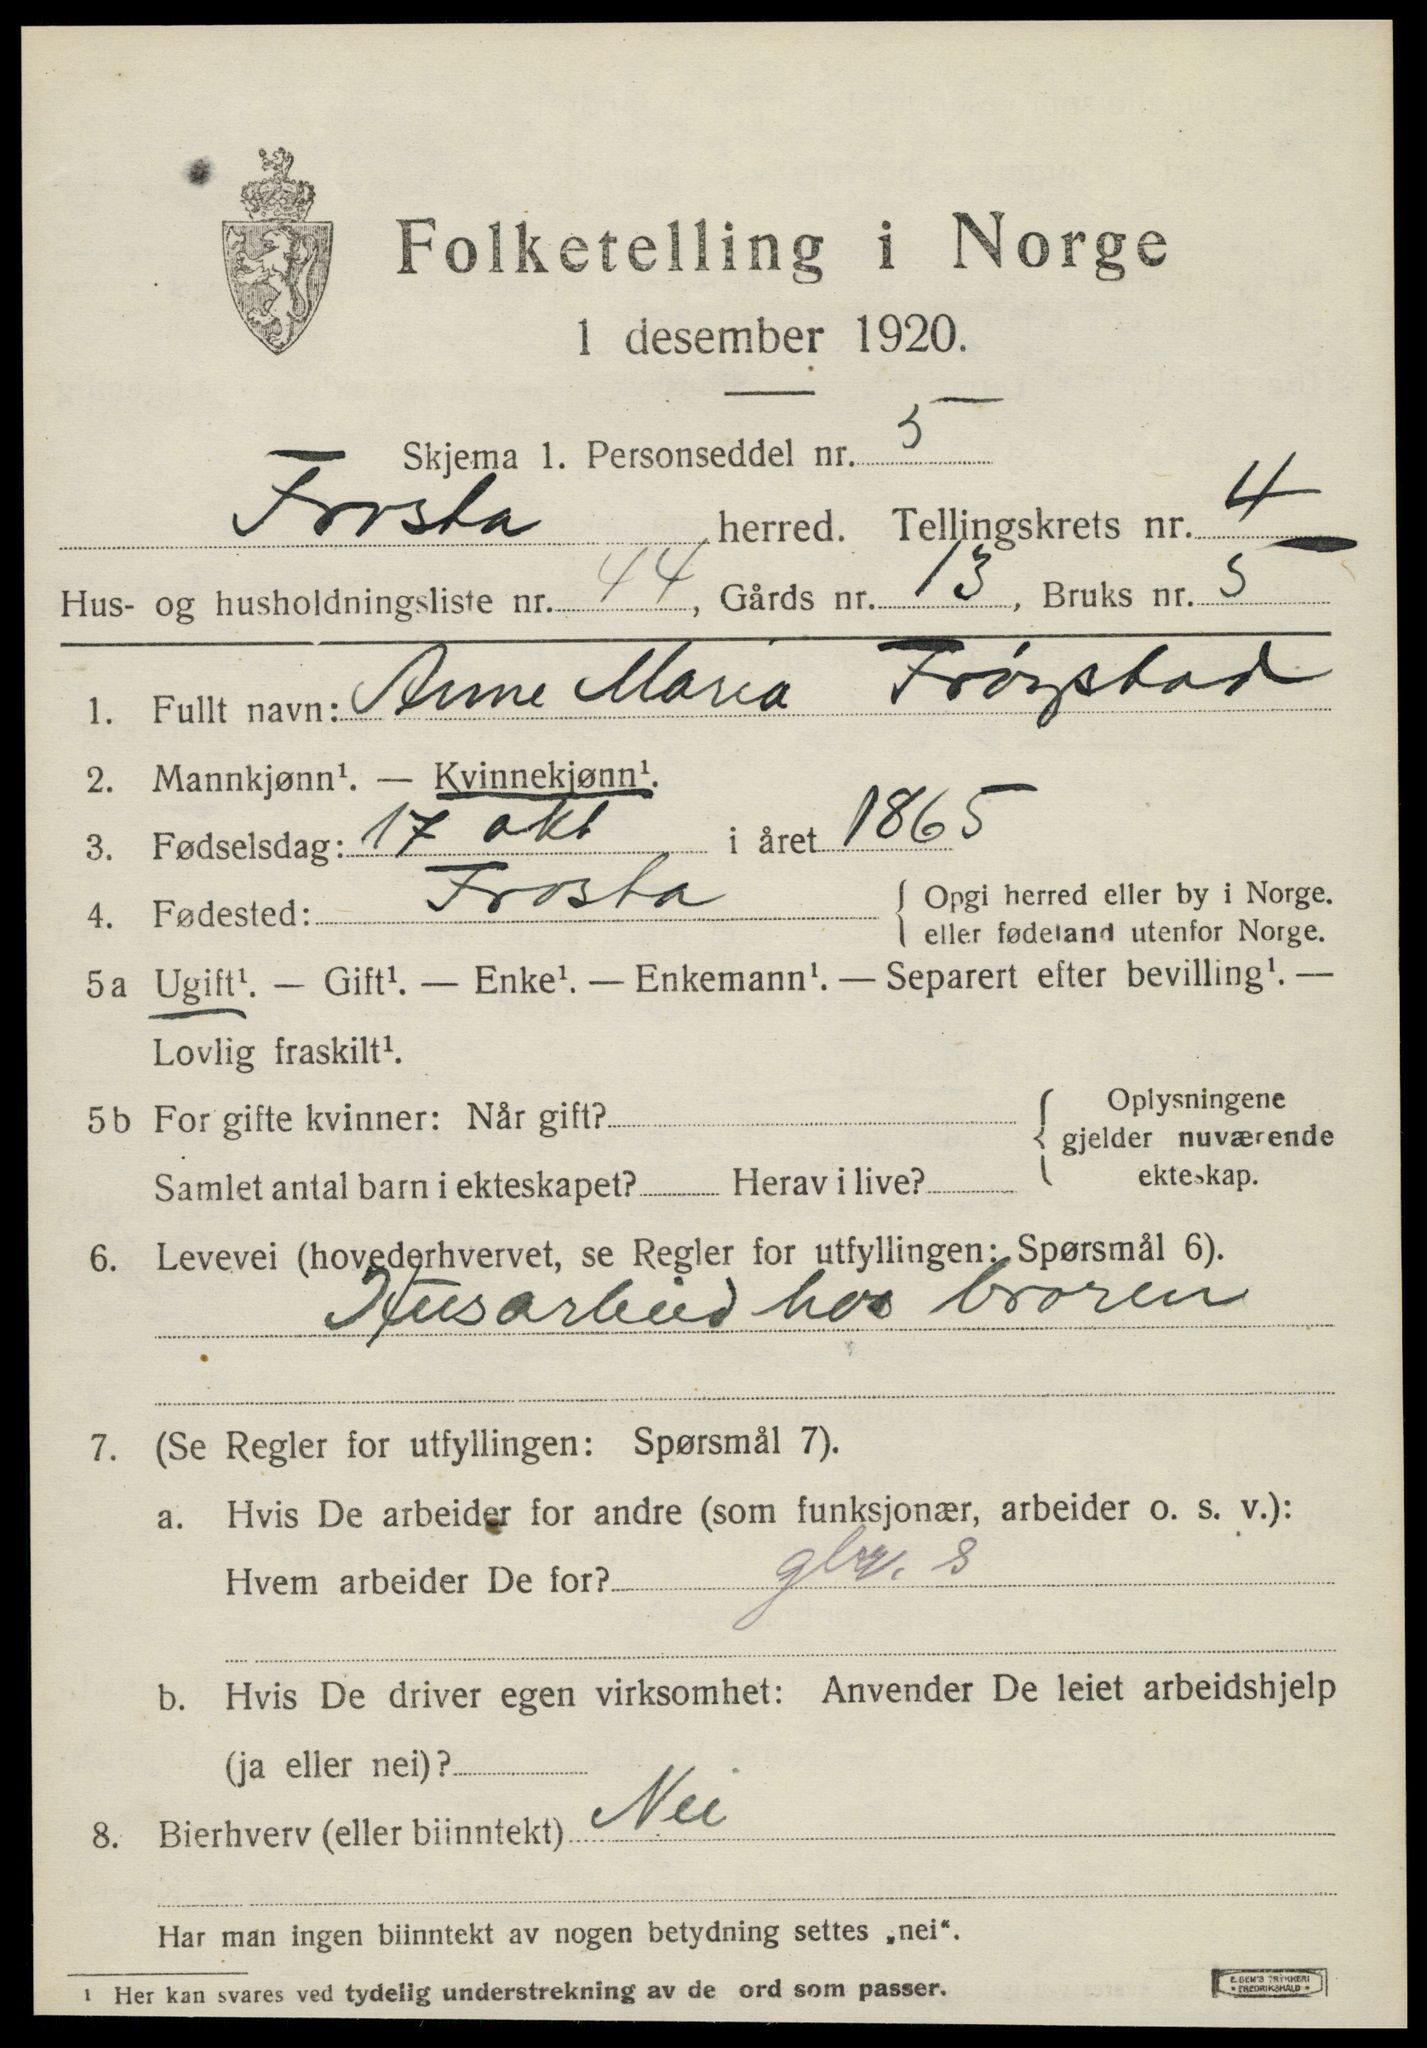 Folketelling i Norge
1 desember 1920.
Skjema 1. Personseddel nr. 5
Frosta herred. Tellingskrets nr. 4
Hus- og husholdningsliste nr. 44, Gårds nr. 13, Bruks nr. 5
1. Fullt navn: Anne Maria Frøystad
2. Mannkjønn¹. — Kvinnekjønn¹.
3. Fødselsdag: 17 okt i året 1865
4. Fødested: Frosta { Opgi herred eller by i Norge.
eller fødeland utenfor Norge.
5a Ugift¹. — Gift¹. — Enke¹. — Enkemann¹. — Separert efter bevilling¹. —
Lovlig fraskilt¹.
5b For gifte kvinner: Når gift? { Oplysningene
gjelder nuværende
Samlet antal barn i ekteskapet? Herav i live? ekteskap.
6. Levevei (hovederhvervet, se Regler for utfyllingen: Spørsmål 6).
Husarbeid hos broren
7. (Se Regler for utfyllingen: Spørsmål 7).
a. Hvis De arbeider for andre (som funksjonær, arbeider o. s. v.):
Hvem arbeider De for? gbr. s
b. Hvis De driver egen virksomhet: Anvender De leiet arbeidshjelp
(ja eller nei)?
8. Bierhverv (eller biinntekt) Nei
Har man ingen biinntekt av nogen betydning settes „nei“.
¹ Her kan svares ved tydelig understrekning av de ord som passer.
E. SEM'S TRYKKERI
• FREDRIKSHALD •